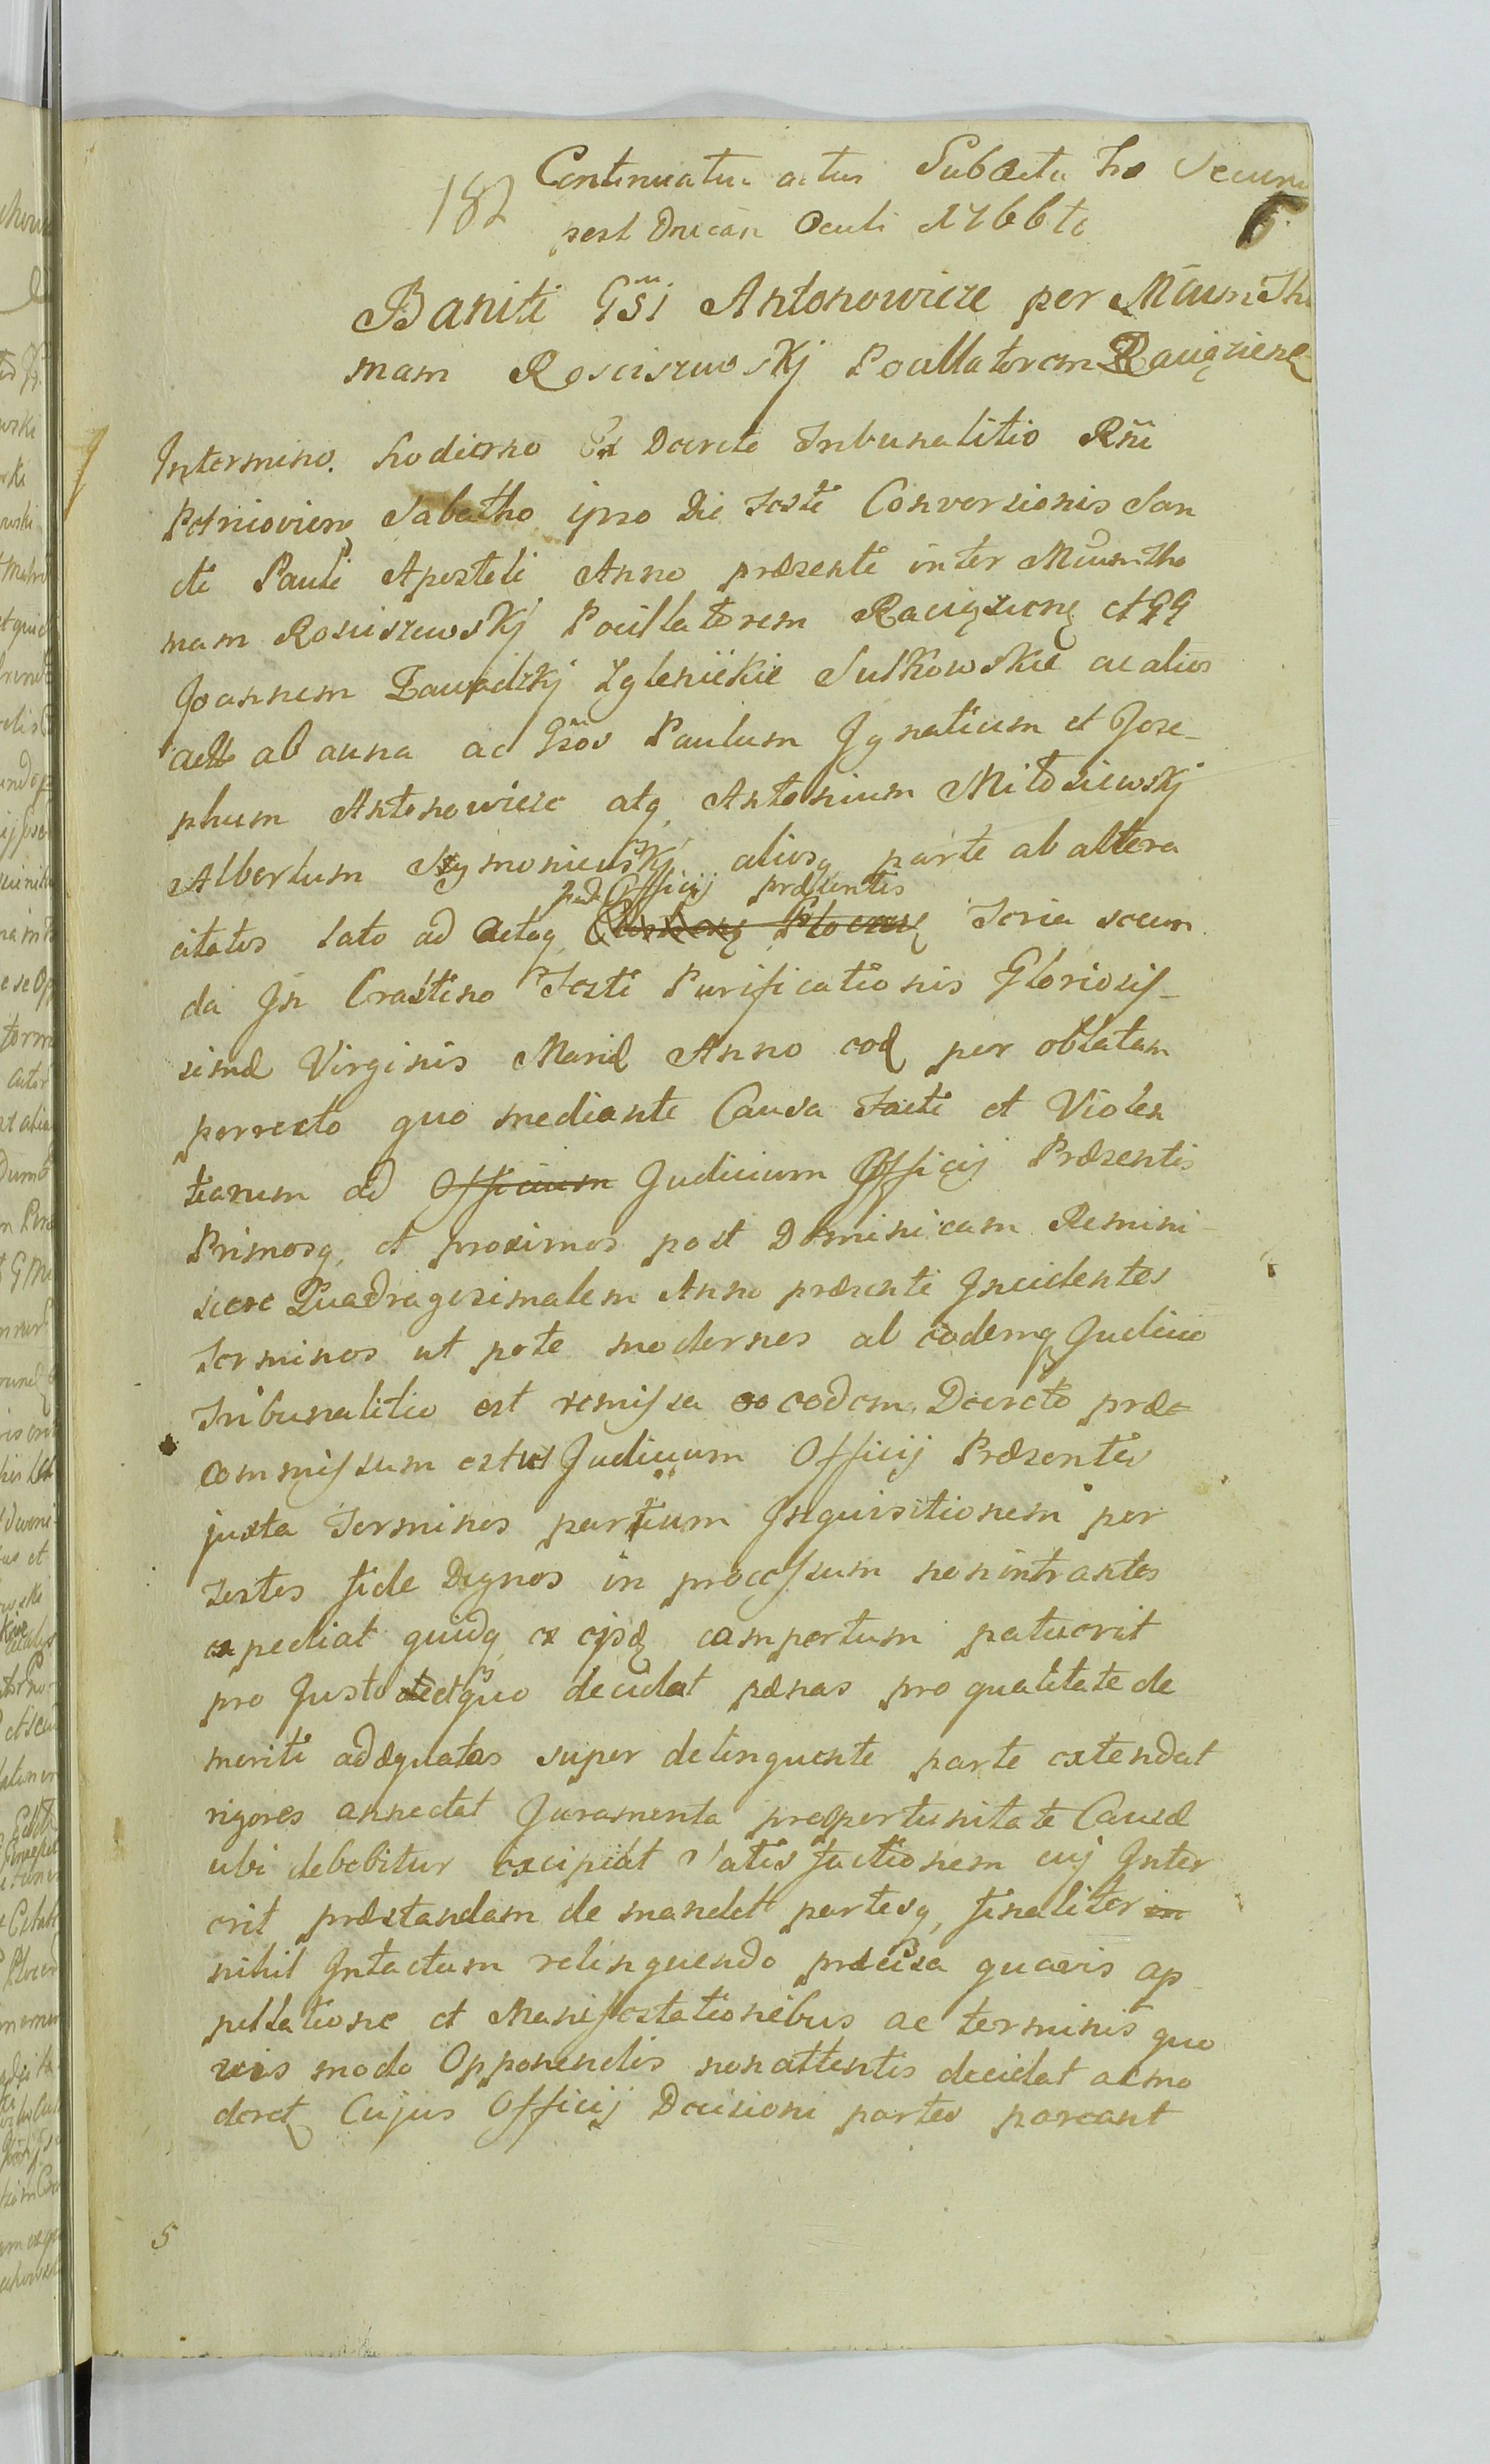 Continuatur actus Sub Actu Fra Secun
182 post Dnicān Oculi 1766to
6.
Baniti Gsi Antonowicze per Mcum Tho
mam Rosciszewskj Pocillatorem Raciązienę
In termino hodierno Ex Decreto Tribunalitio Rñi
Petricovienę Sabatho ipso Die Festi Conversionis San
cti Pauli Apostoli Anno præsenti inter Mcum Tho
mam Rosciszewskj Pocillatorem Raciązienę et GG
Joannem Zawadzkj Zglenickie Sulkowskie ac alios
act ab auna ac Gsos Paulum Ignatium et Jose-
phum Antonowicze atq Antonium Miłosiewskj
Albertum Szymoniewskj aliosq parte ab altera
Officij præsentis
citatos lato ad Actaq Feria secun
da In Crastino Festi Purificationis Gloriosis-
simæ Virginis Mariæ Anno eoq per oblatam
perrecto quo mediante Causa Facti et Violen
tiarum ad Officium Judicium Officij Præsentis
Primosq et proximos post Dominicam Remini
scere Quadragesimalem Anno præsenti Incidentes
Terminos ut pote modernos ab eodemq Judicio
Tribunalitio est remissa eo eodem Decreto præ
commissum est ut Judicium Officij Præsentis
juxta Terminos partium Inquisitionem per
Testes fide Dignos in processum non intrantes
expediat quidq ex ejsdę compertum patuerit
pro Justo et æquo decidat pænas pro qualitate de
meriti adæquatas super delinquente parte extendat
rigores annectat Juramenta pro opportunitate Causæ
ubi debebitur excipiat Satis factionem cuj Inter
erit præstandam de mandet partesq finaliter in
nihil Intactum relinquendo præcisa quavis ap
pellatione et Manifestationibus ac terminis quo
vis modo Opponendis non attentis decidat ac mo
deret Cujus Officij Decisioni partes pareant
5